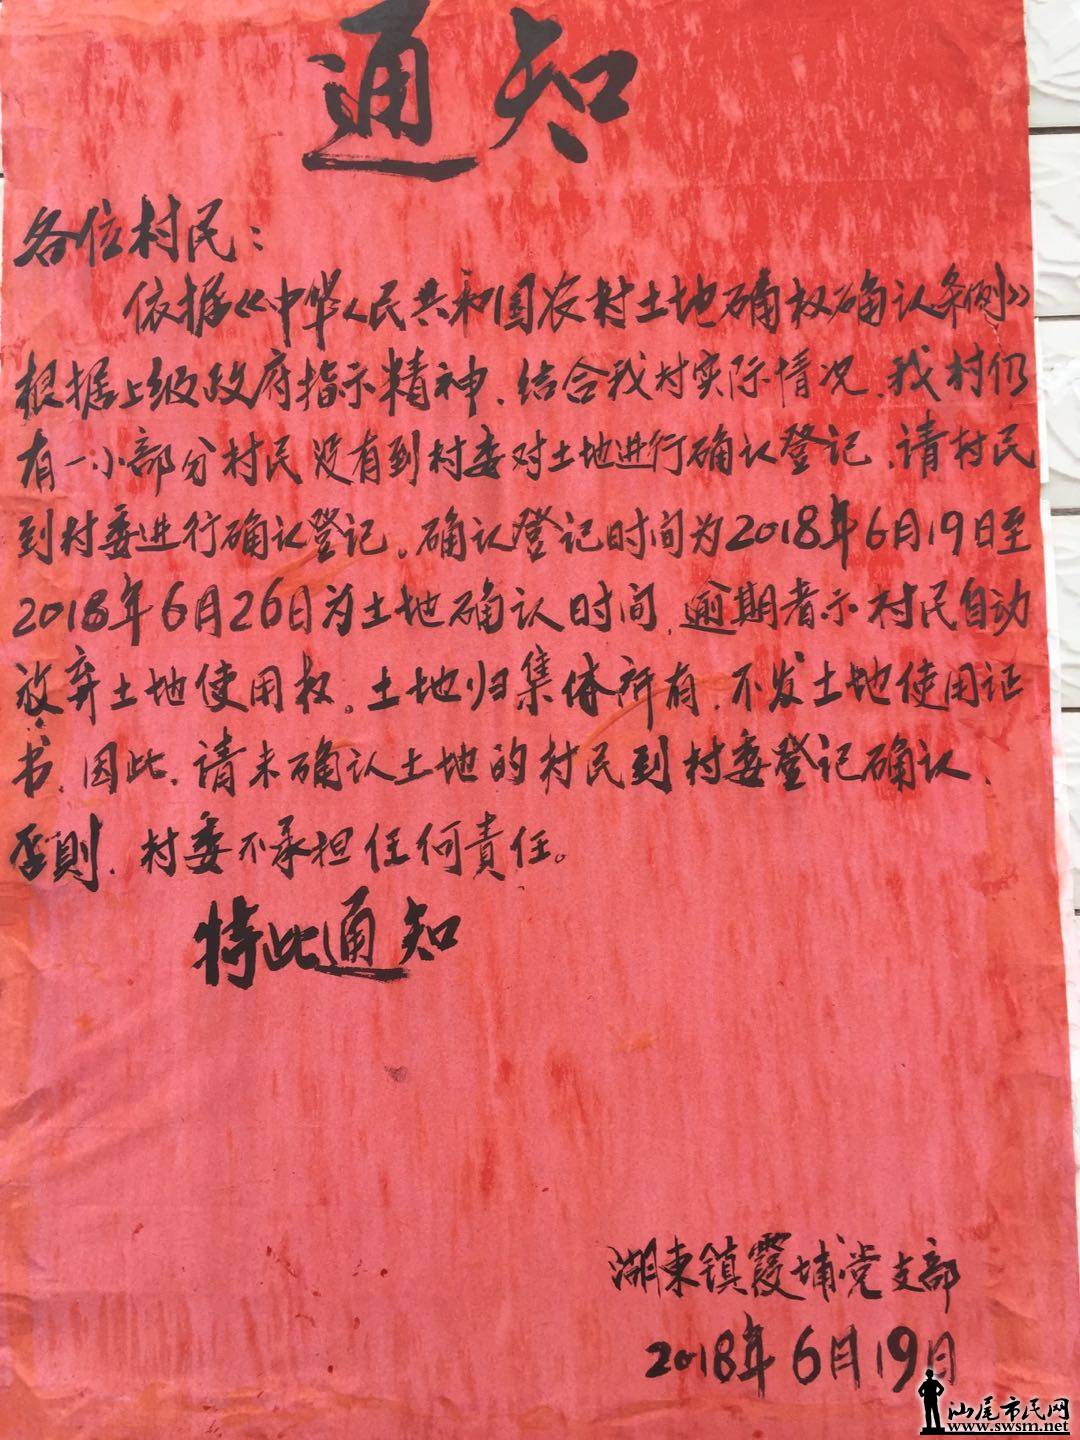 通知
各位村民：
依据《中华人民共和国农村土地确权确认条例》
根据上级政府指示精神，结合我村实际情况，我村仍
有一小部分村民没有到村委对土地进行确认登记，请村民
到村委进行确认登记。确认登记时间为2018年6月19日至
2018年6月26日为土地确认时间，逾期者示村民自动
放弃土地使用权。土地归集体所有，不发土地使用证
书，因此，请未确认土地的村民到村委登记确认，
否则，村委不承担任何責任。
特此通知
湖東镇霞埔党支部
2018年6月19日
汕尾市民网
www.swsm.net